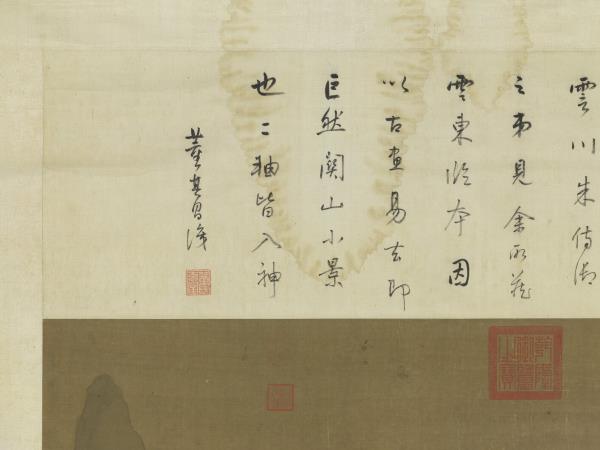 雲川朱侍御
之弟見余所藏
雲東臨本因
以古畫易去即
巨然關山小景
也二軸皆入神
董其昌識
乾隆御覽之寶